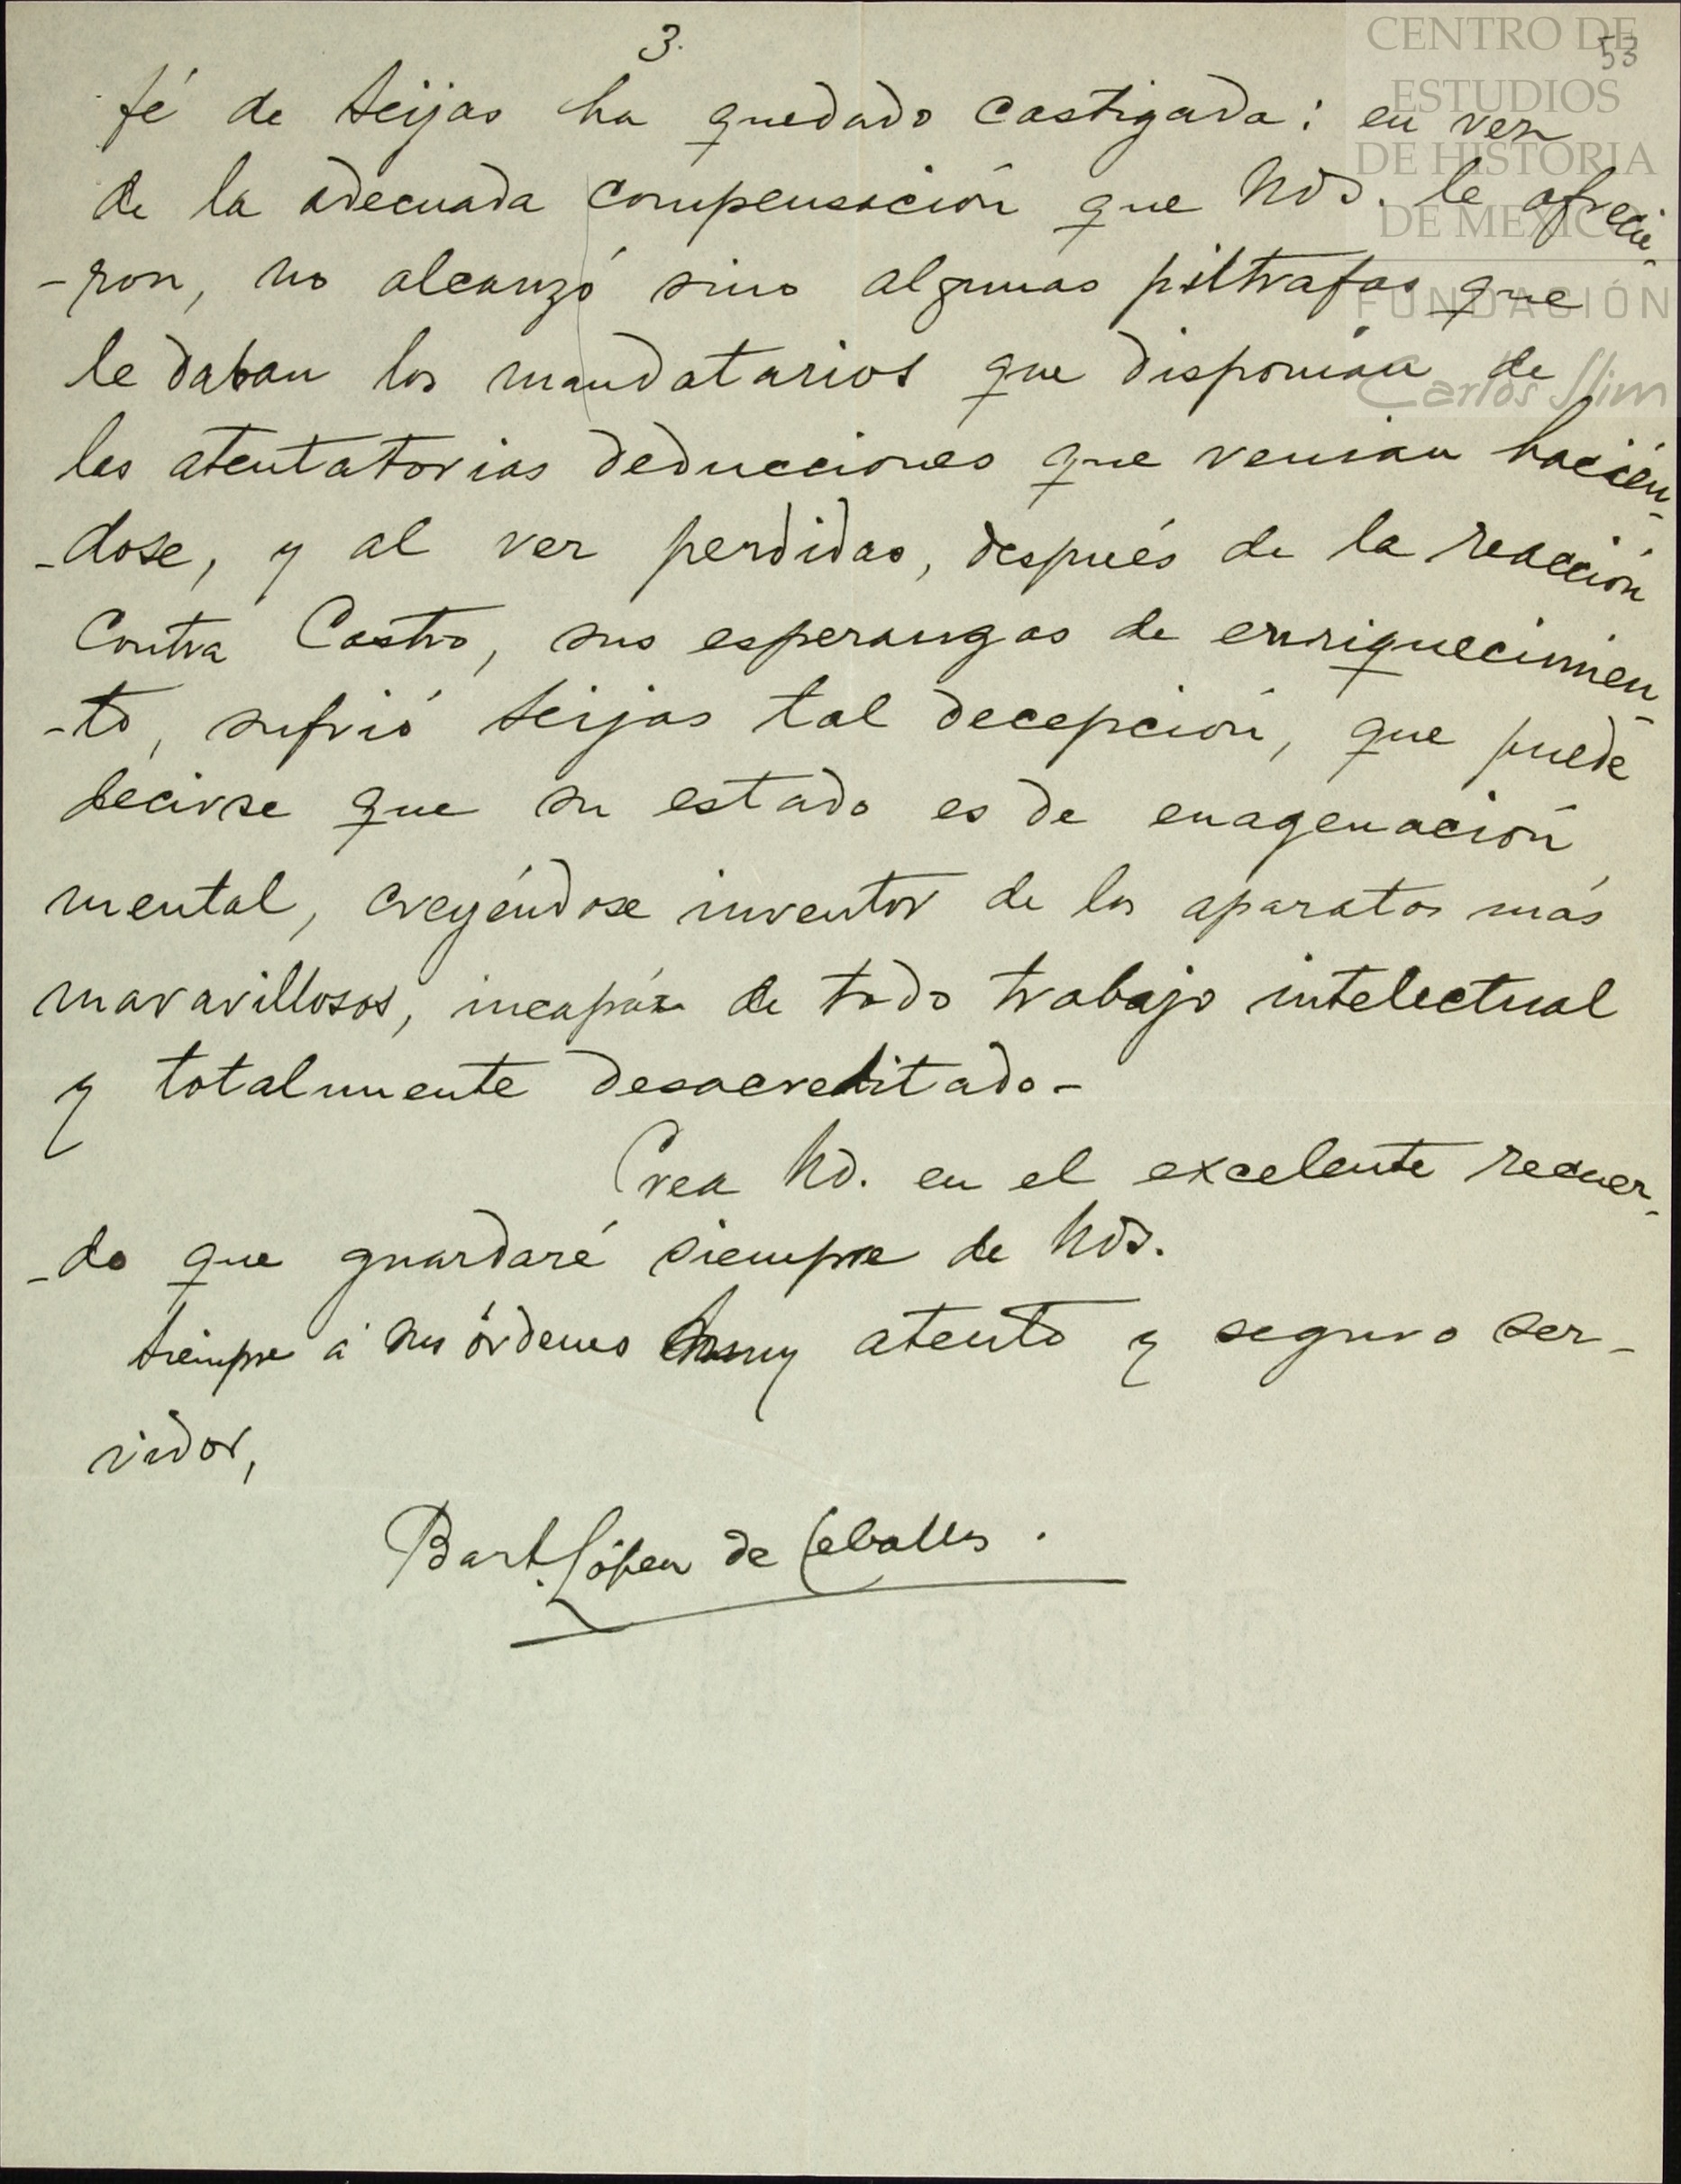 3.
53
CENTRO DE
ESTUDIOS
DE HISTORIA
DE MEXICO
FUNDACIÓN
Carlos Slim
fé de Seijas ha quedado castigada: en vez
de la adecuada compensación que Uds. le ofrecie-
-ron, no alcanzó sino algunas piltrafas que
le daban los mandatarios que disponían de
las atentatorias deducciones que venían hacién-
-dose, y al ver perdidas, después de la reacción
contra Castro, sus esperanzas de enriquecimien-
-to, sufrió Seijas tal decepción, que puede
decirse que su estado es de enagenación
mental, creyéndose inventor de los aparatos más
maravillosos, incapáz de todo trabajo intelectual
y totalmente desacreditado-
Crea Ud. en el excelente recuer-
-do que guardaré siempre de Uds.
Siempre á sus órdenes muy atento y seguro ser-
vidor,
Bart. López de Ceballos.